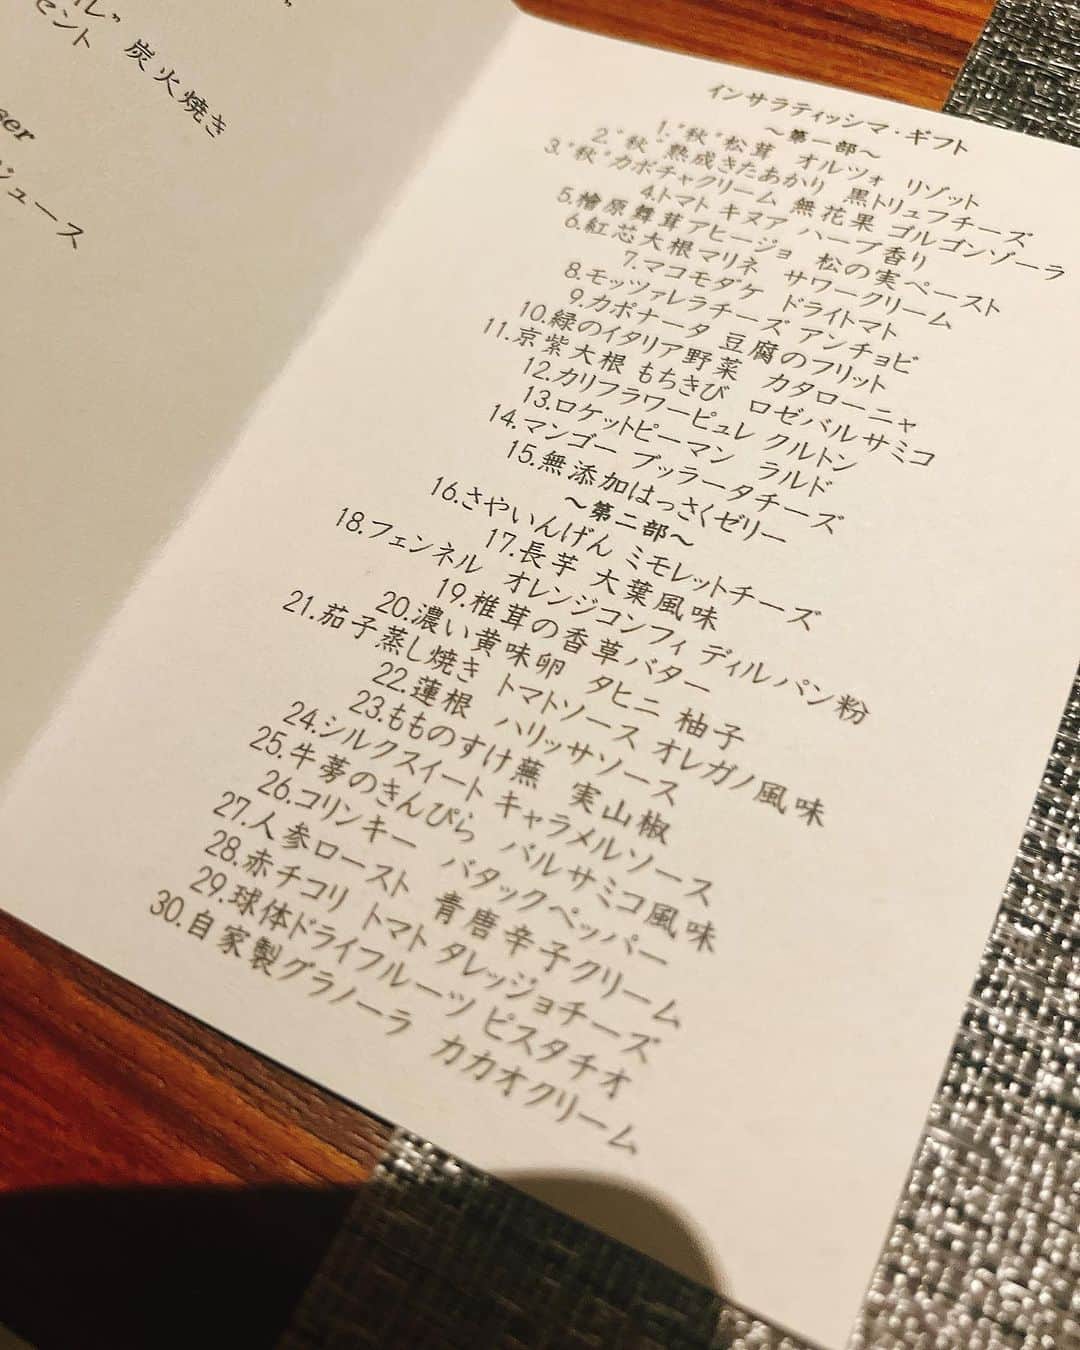 炭火焼き
セント
ser
ジュース
インサラティッシマ・ギフト
～第一部～
1.“秋”松茸 オルツォ リゾット
2.“秋”熟成きたあかり 黒トリュフチーズ
3.“秋”カボチャクリーム 無花果 ゴルゴンゾーラ
4.トマト キヌア ハーブ香り
5.檜原舞茸アヒージョ 松の実ペースト
6.紅芯大根マリネ サワークリーム
7.マコモダケ ドライトマト
8.モッツァレラチーズ アンチョビ
9.カポナータ 豆腐のフリット
10.緑のイタリア野菜 カタローニャ
11.京紫大根 もちきび ロゼバルサミコ
12.カリフラワーピュレ クルトン
13.ロケットピーマン ラルド
14.マンゴー ブッラータチーズ
15.無添加はっさくゼリー
～第二部～
16.さやいんげん ミモレットチーズ
17.長芋 大葉風味
18.フェンネル オレンジコンフィ ディルパン粉
19.椎茸の香草バター
20.濃い黄味卵 タヒニ 柚子
21.茄子蒸し焼き トマトソース オレガノ風味
22.蓮根 ハリッサソース
23.もものすけ蕪 実山椒
24.シルクスイート キャラメルソース
25.牛蒡のきんぴら バルサミコ風味
26.コリンキー バタックペッパー
27.人参ロースト 青唐辛子クリーム
28.赤チコリ トマト タレッジョチーズ
29.球体ドライフルーツ ピスタチオ
30.自家製グラノーラ カカオクリーム